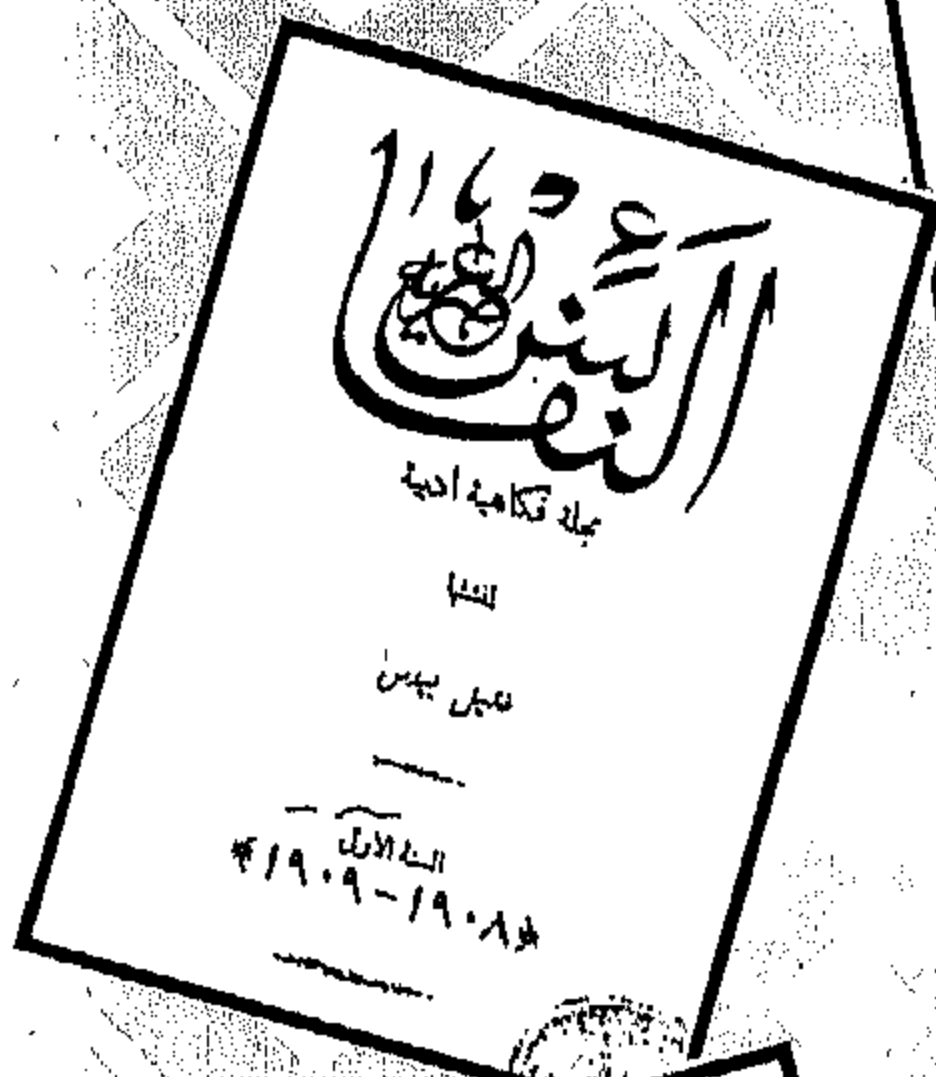 النفائس
مجلة فكاهية أدبية
لمنشئها
خليل بيدس
السنة الأولى
١٩٠٨-١٩٠٩